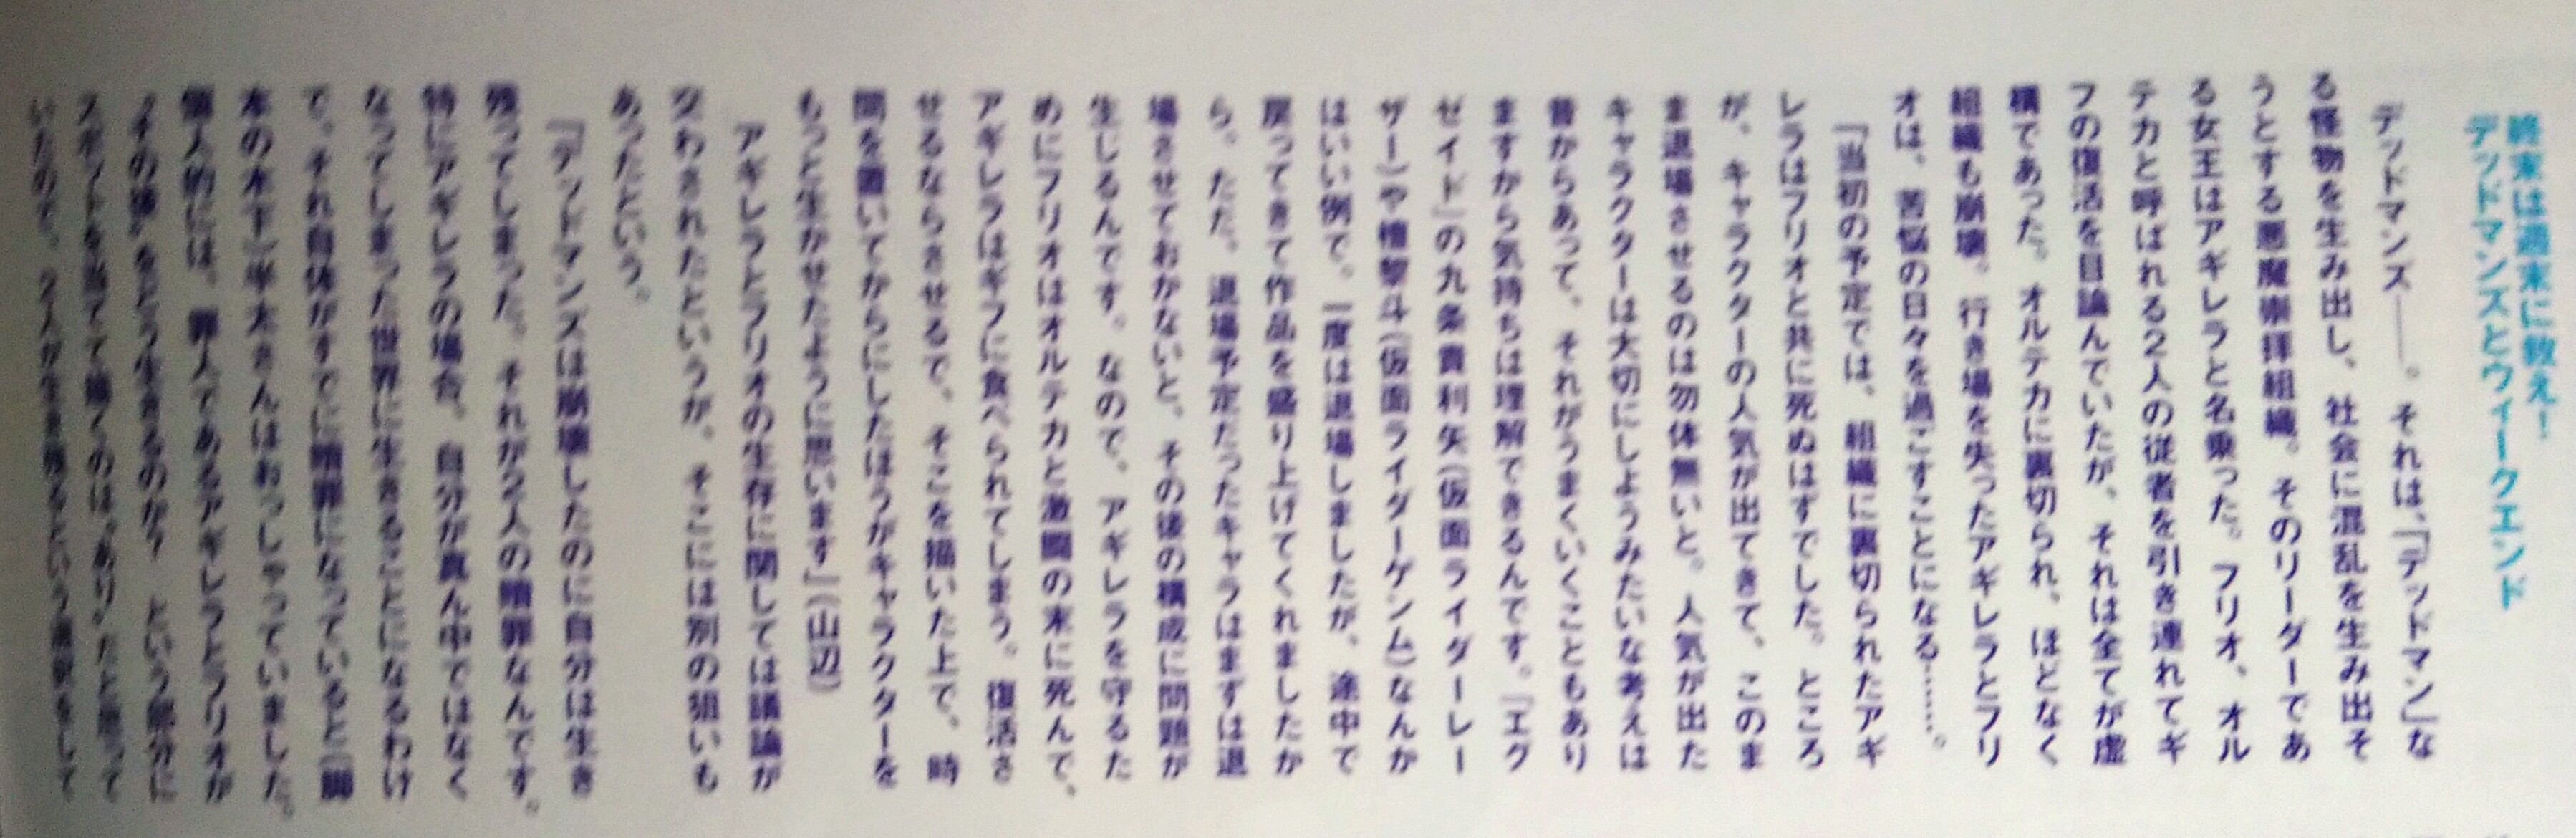 終末は週末に数え！
デッドマンズとウィークエンド
デッドマンズ――。それは、「デッドマン」な
る怪物を生み出し、社会に混乱を生み出そ
うとする悪魔崇拝組織。そのリーダーであ
る女王はアギレラと名乗った。フリオ、オル
テカと呼ばれる2人の従者を引き連れてギ
フの復活を目論んでいたが、それは全てが虚
構であった。オルテカに裏切られ、ほどなく
組織も崩壊。行き場を失ったアギレラとフリ
オは、苦悩の日々を過ごすことになる……。
「当初の予定では、組織に裏切られたアギ
レラはフリオと共に死ぬはずでした。ところ
が、キャラクターの人気が出てきて、このま
ま退場させるのは勿体無いと。人気が出た
キャラクターは大切にしようみたいな考えは
昔からあって、それがうまくいくこともあり
ますから気持ちは理解できるんです。『エグ
ゼイド』の九条貴利矢（仮面ライダーレー
ザー）や檀黎斗（仮面ライダーゲンム）なんか
はいい例で、一度は退場しましたが、途中で
戻ってきて作品を盛り上げてくれましたか
ら。ただ、退場予定だったキャラはまずは退
場させておかないと、その後の構成に問題が
生じるんです。なので、アギレラを守るた
めにフリオはオルテカと激闘の末に死んで、
アギレラはギフに食べられてしまう。復活さ
せるならさせるで、そこを描いた上で、時
間を置いてからにしたほうがキャラクターを
もっと生かせたように思います」（山辺）
アギレラとフリオの生存に関しては議論が
交わされたというが、そこには別の狙いも
あったという。
「デッドマンズは崩壊したのに自分は生き
残ってしまった。それが2人の贖罪なんです。
特にアギレラの場合、自分が真ん中ではなく
なってしまった世界に生きることになるわけ
で、それ自体がすでに贖罪になっていると（脚
本の木下）半太さんはおっしゃっていました。
個人的には、罪人であるアギレラとフリオが
“その後”をどう生きるのか？　という部分に
スポットを当てて描くのは“あり”だと思って
いたので、2人が生き残るという選択をして